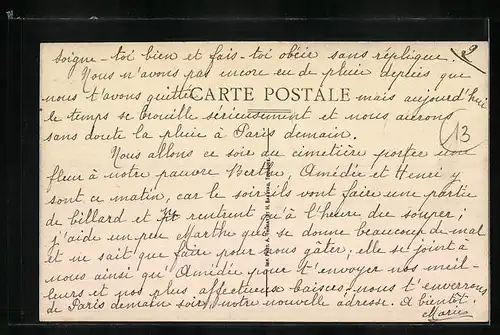 9
soigne-toi bien et fais-toi obéir sans réplique.
Nous n'avons pas encore eu de pluie depuis que
nous t'avons quittée mais aujourd'hui
CARTE POSTALE
le temps se brouille sérieusement et nous aurons
sans doute la pluie à Paris demain.
13
Nous allons ce soir au cimetière porter une
fleur à notre pauvre Berthe, Amédée et Henri y
sont ce matin, car le soir ils vont faire une partie
de billard et rentrent qu'à l'heure du souper;
j'aide un peu Marthe qui se donne beaucoup de mal
et ne sait que faire pour nous gâter; elle se joint à
nous ainsi qu'Amédée pour t'envoyer nos meil-
leurs et nos plus affectueux baisers. nous t'enverrons
de Paris demain soir, notre nouvelle adresse. A bientôt
Marie